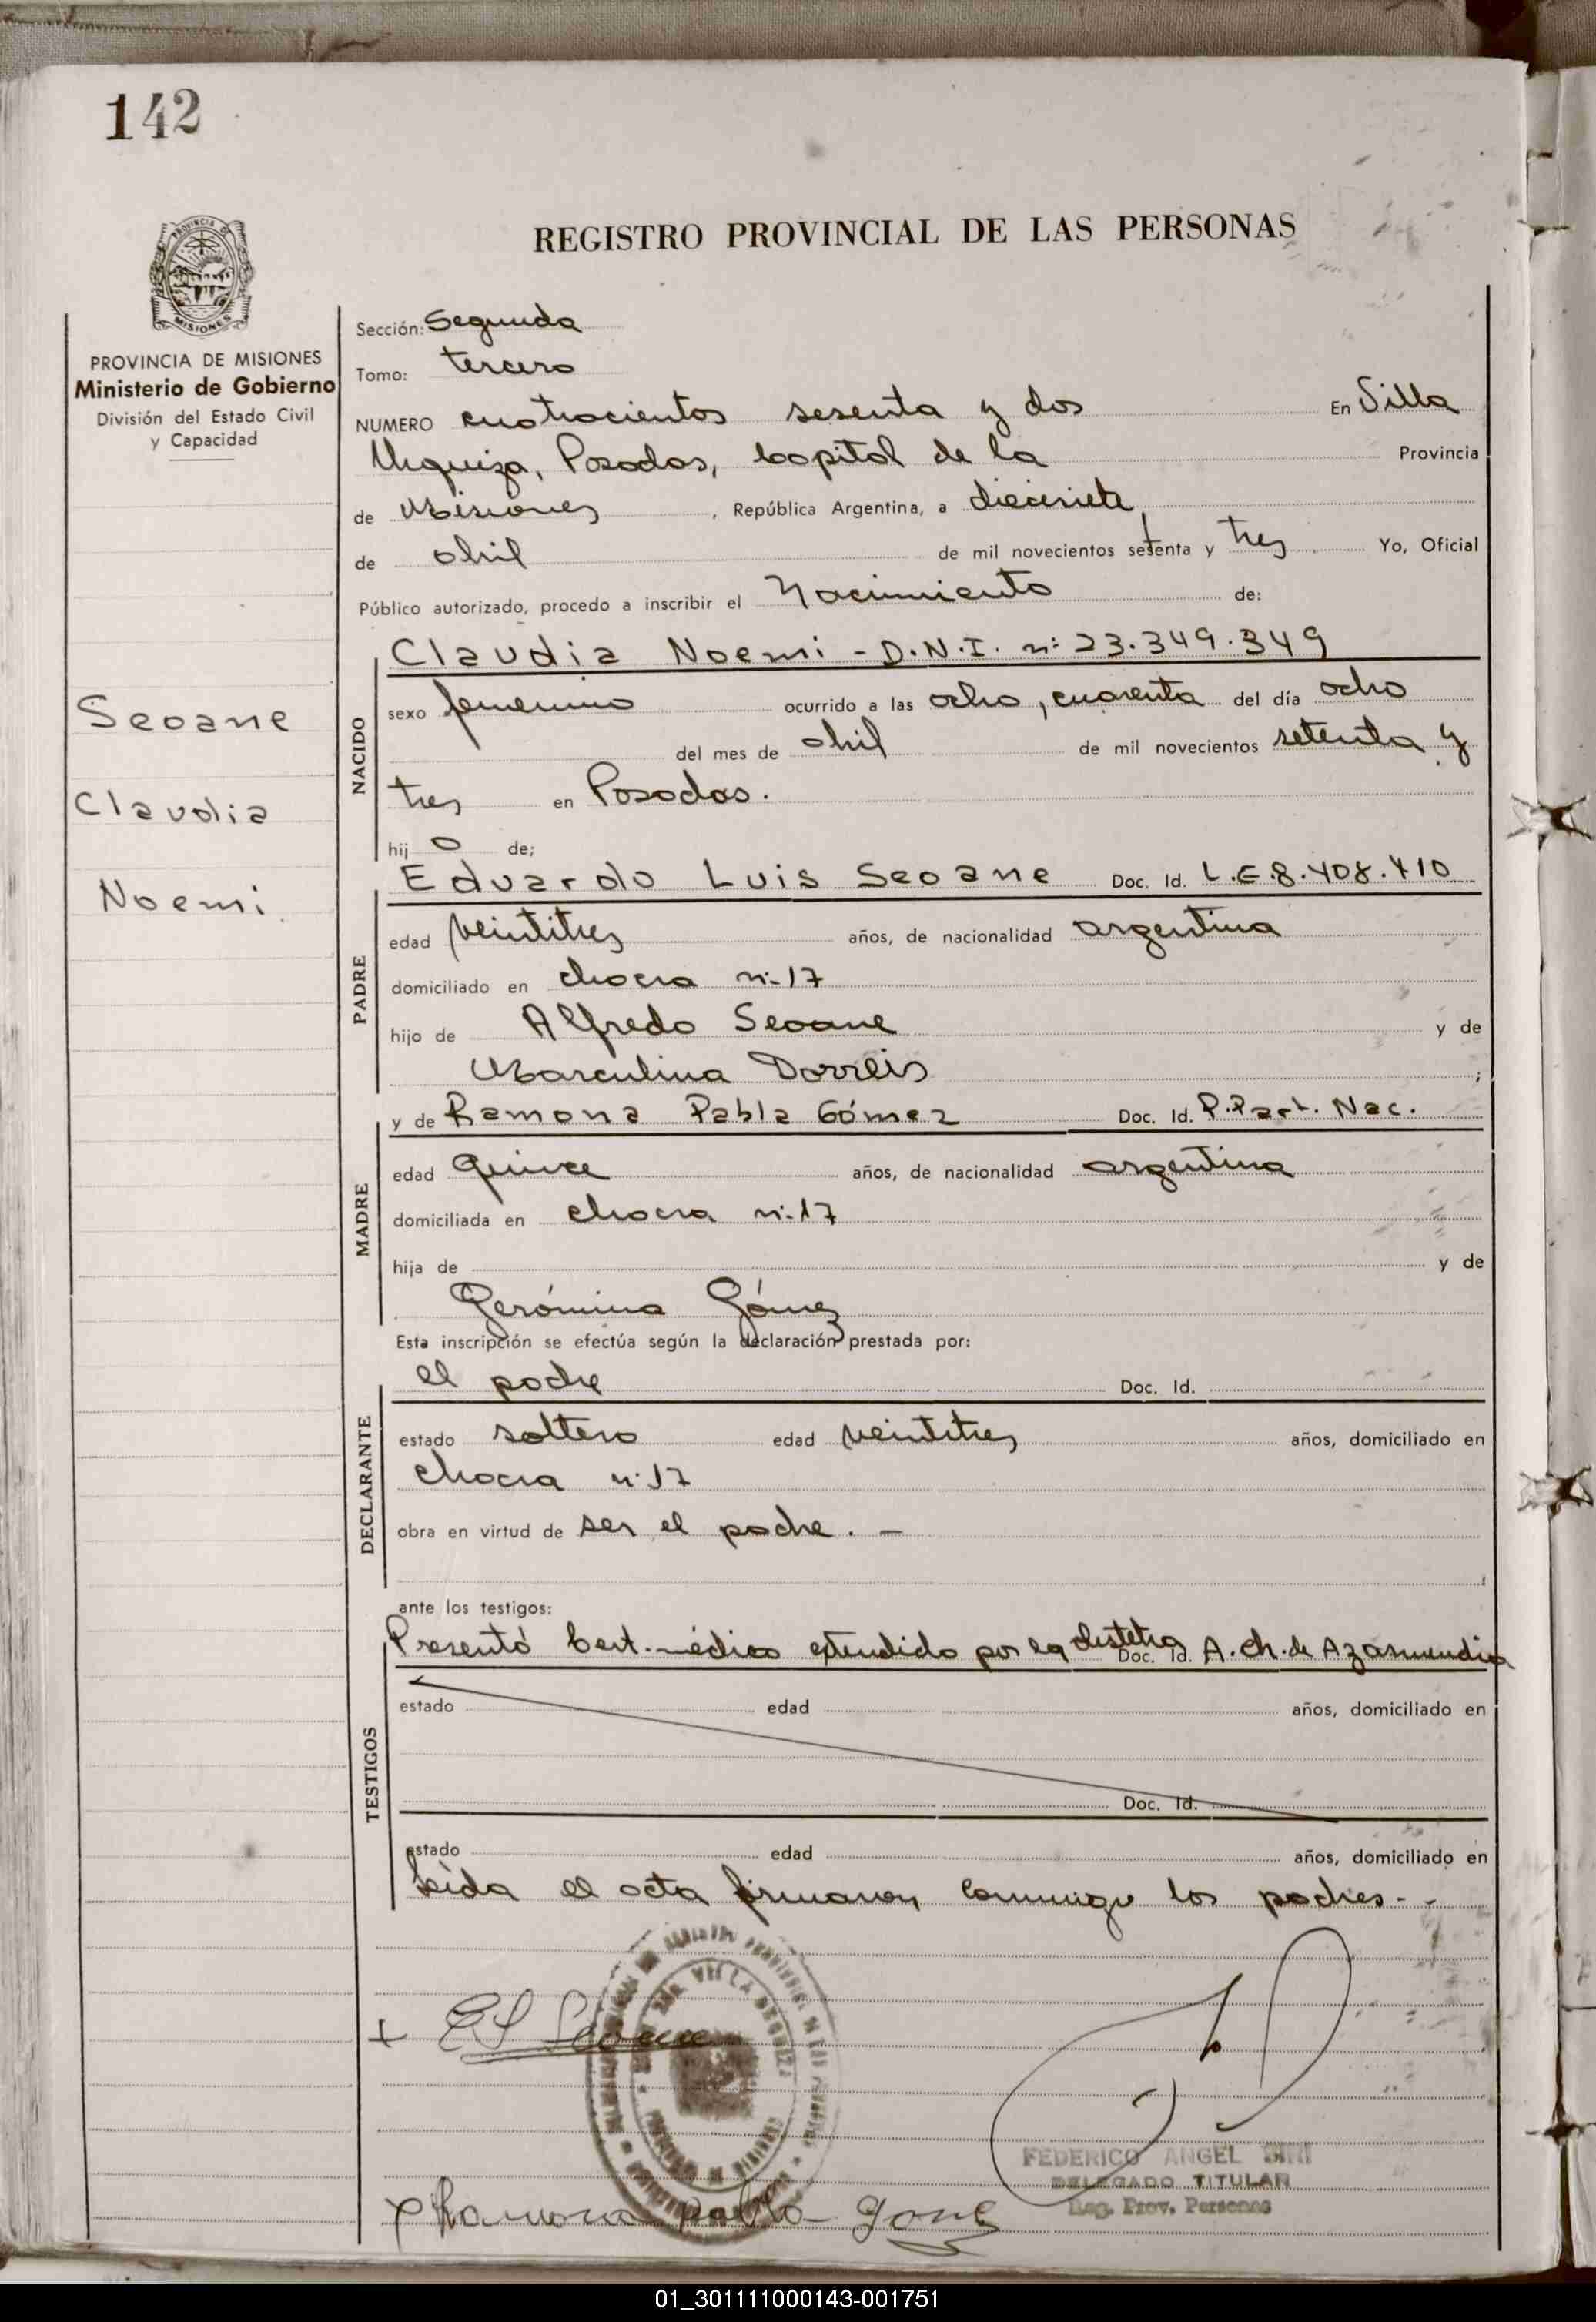 142
PROVINCIA DE
MISIONES
PROVINCIA DE MISIONES
Ministerio de Gobierno
División del Estado Civil
y Capacidad
Seoane
Claudia
Noemi
REGISTRO PROVINCIAL DE LAS PERSONAS
Sección: Segunda
Tomo: tercero
NUMERO cuatrocientos sesenta y dos En Villa
Urquiza, Posadas, Capital de la Provincia
de Misiones, República Argentina, a diecisiete
de abril de mil novecientos setenta y tres Yo, Oficial
Público autorizado, procedo a inscribir el Nacimiento de:
Claudia Noemi - D.N.I. nº 23.349.349
NACIDO
sexo femenino ocurrido a las ocho, cuarenta del día ocho
del mes de abril de mil novecientos setenta y
tres en Posadas.
hij a de;
Eduardo Luis Seoane Doc. Id. L.E.8.408.410
PADRE
edad veintitres años, de nacionalidad argentina
domiciliado en chacra nº 17
hijo de Alfredo Seoane y de
Marculina Dorreis;
y de Ramona Pabla Gómez Doc. Id. P.Part. Nac.
MADRE
edad quince años, de nacionalidad argentina
domiciliada en chacra nº 17
hija de y de
Gerónima Gómez
Esta inscripción se efectúa según la declaración prestada por:
el padre Doc. Id.
DECLARANTE
estado soltero edad veintitres años, domiciliado en
chacra nº 17
obra en virtud de ser el padre. -
ante los testigos:
Presentó Cert. médico extendido por la obstetra Doc. Id. A. Ch. de Azarmendia
TESTIGOS
estado edad años, domiciliado en
Doc. Id.
estado edad años, domiciliado en
Leida el acta firmaron conmigo los padres - -
+ E L Seoane
FEDERICO ANGEL
DELEGADO TITULAR
Reg. Prov. Personas
x Ramona Pabla Gome
01_301111000143-001751